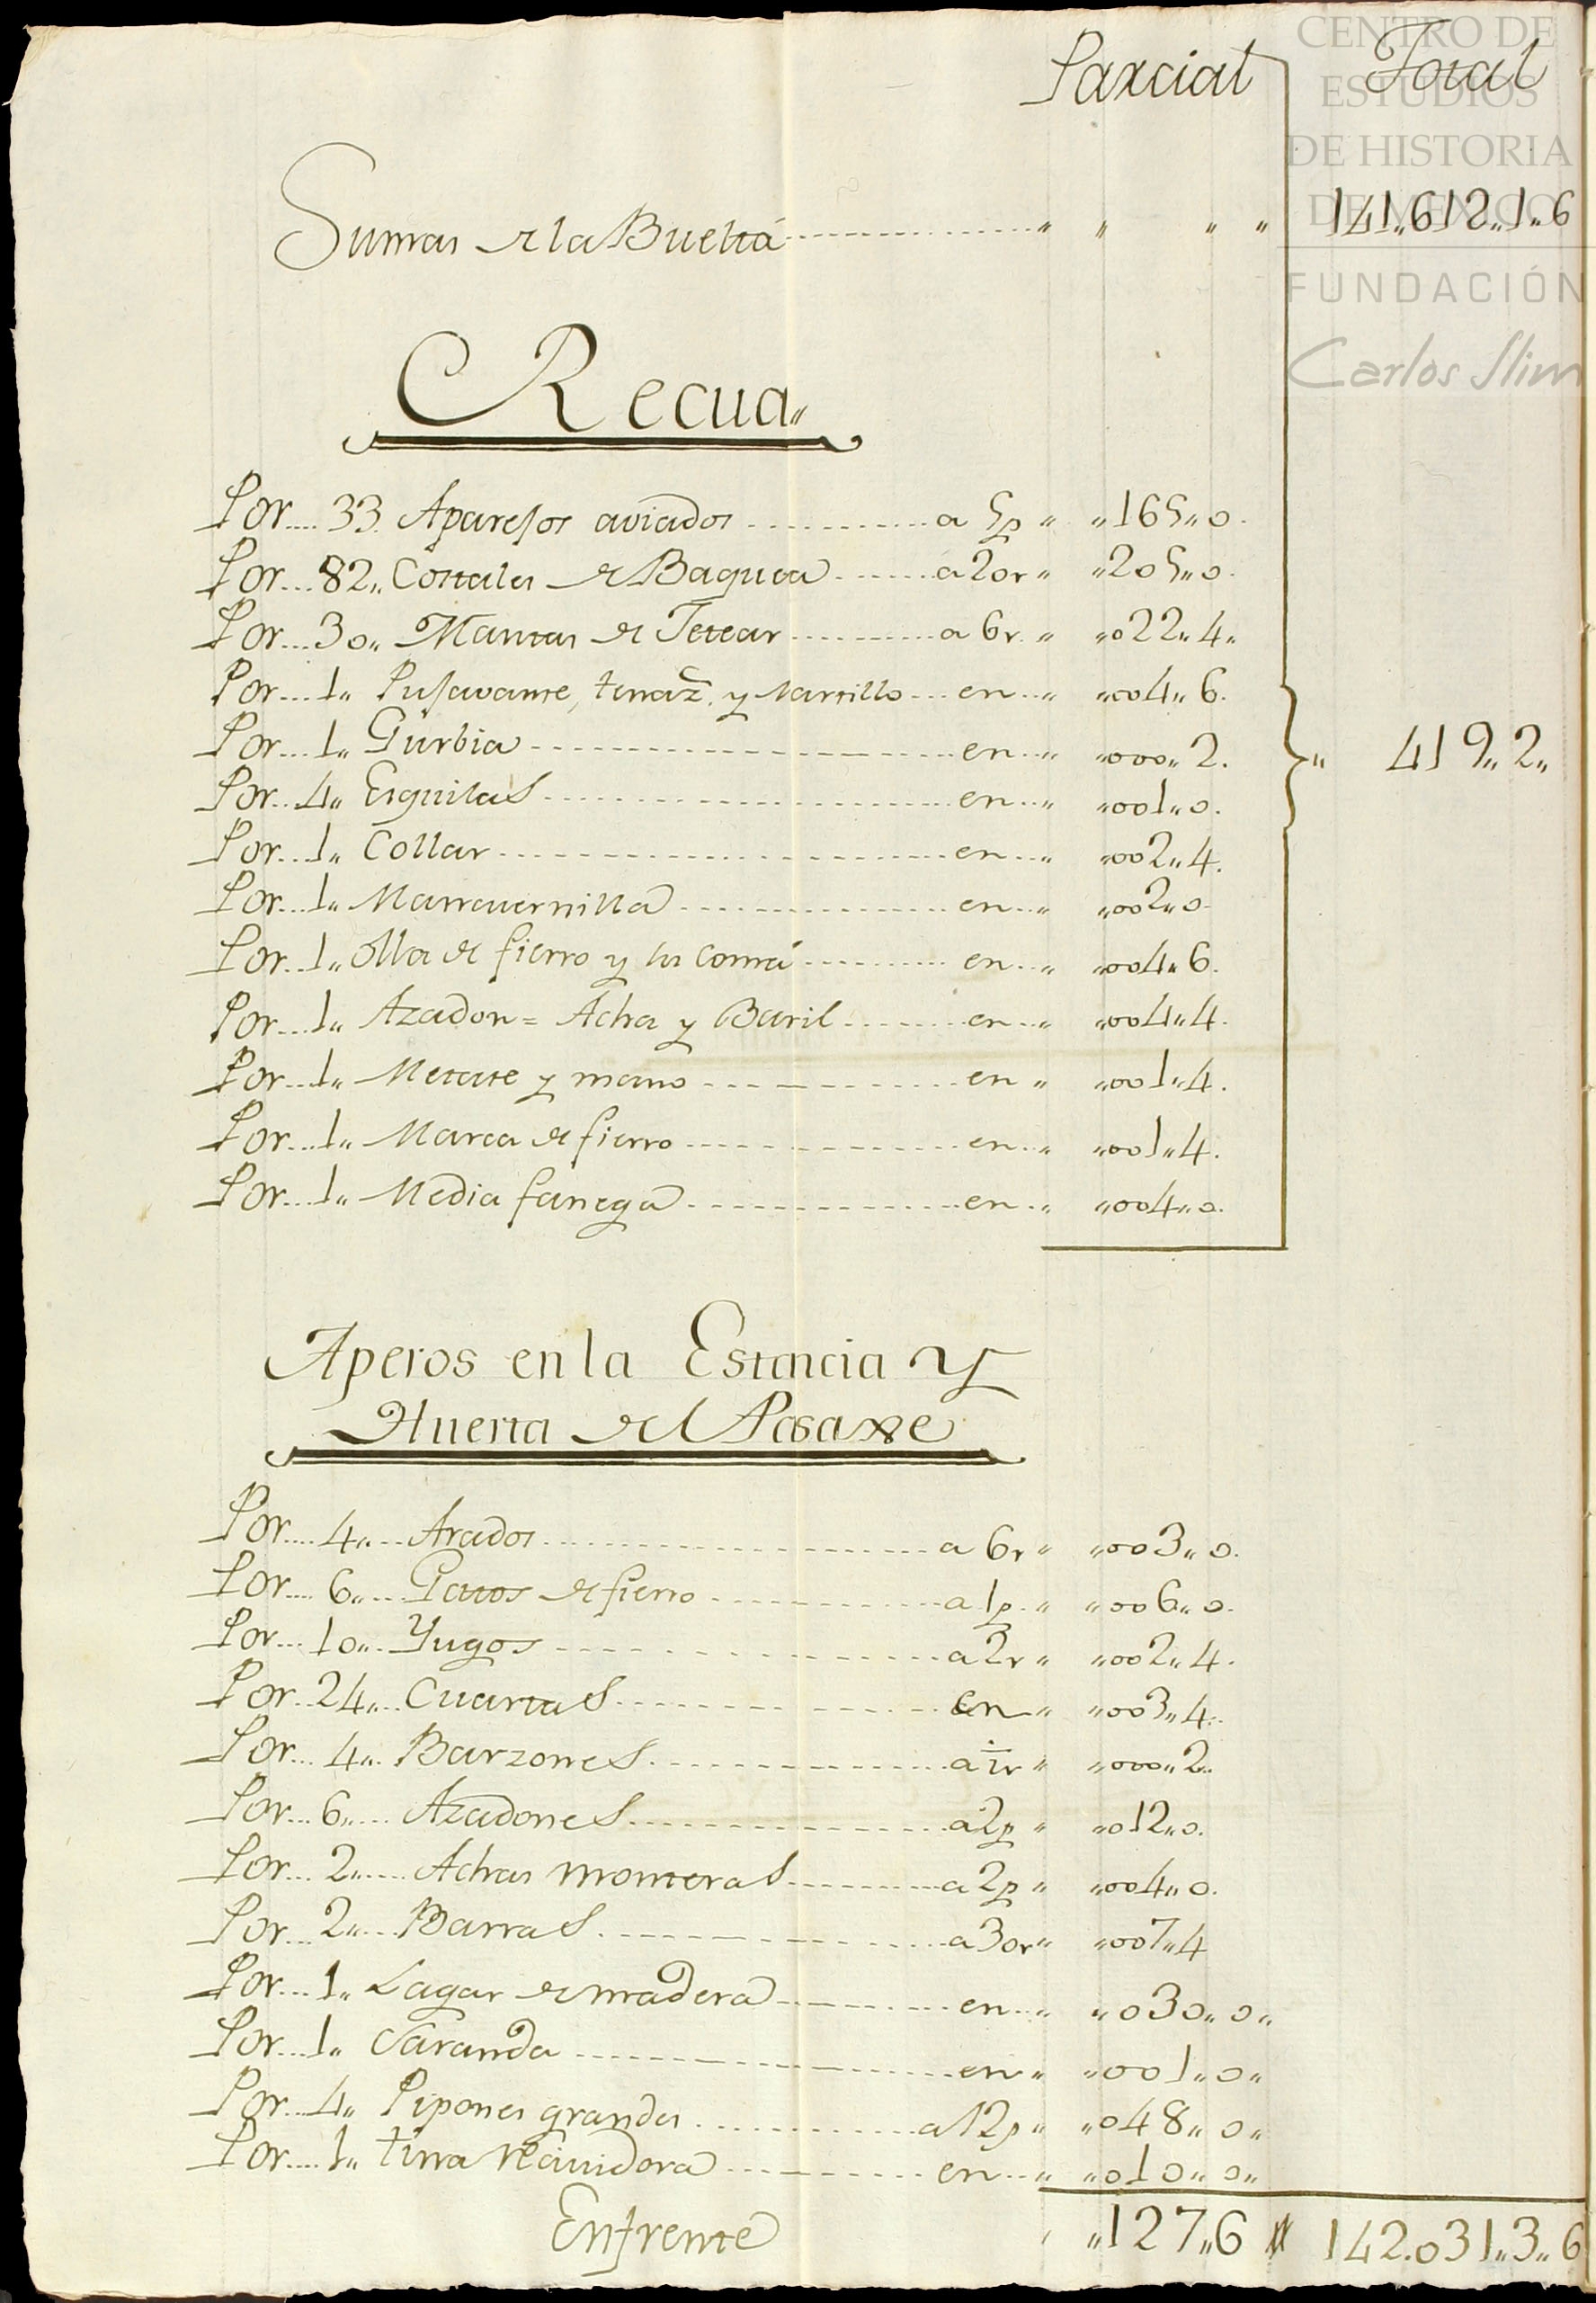 Parcial Total
CENTRO DE
ESTUDIOS
DE HISTORIA
DE MEXICO
FUNDACIÓN
Carlos Slim
Sumas de la Buelta ........ „ „ „ „ 141„612„1„6
Recua„
Por.... 33. Aparejos aviados ........ a 5p „ „165„0.
Por... 82„ Costales de Baqueta ........ a 20r „ „205„0.
Por... 30„ Mantas de Tetear ........ a 6r. „ „022„4„
Por.... 1„ Pujavante, tenaz. y Martillo ... en... „ „004„6.
Por... 1„ Gurbia ........ en... „ „000„2. „ 419„2„
Por... 4„ Eiguilas ........ en... „ „001„0.
Por... 1„ Collar ........ en... „ „002„4.
Por... 1„ Marravernilla ........ en... „ „002„0.
Por... 1„ Olla de fierro y su comá ........ en... „ „004„6.
Por... 1„ Azadon = Acha y Baril ........ en... „ „004„4.
Por... 1„ Metate y mano ........ en „ „001„4.
Por... 1„ Marca de fierro ........ en... „ „001„4.
Por... 1„ Media fanega ........ en... „ „004„0.
Aperos en la Estancia Y
Huerta del Pasaxe
Por.... 4„... Arados ........ a 6r „ „003„0.
Por.... 6„... Gatos de fierro ........ a 1p. „ „006„0.
Por... 10„.. Yugos ........ a 2r „ „002„4.
Por.. 24„... Cuartas ........ en „ „003„4.
Por... 4„.. Barzones ........ a ½r „ „000„2.
Por... 6„.... Azadones ........ a 2p „ „012„0.
Por... 2„.... Achas monteras ........ a 2p „ „004„0.
Por... 2„... Barras ........ a 30r „ „007„4
Por... 1„ Lagar de madera ........ en... „ „030„0„
Por... 1„ Saranda ........ en „ „001„0„
Por... 4„ Pipones grandes ........ a 12p „ „048„0„
Por.... 1„ tina recividora ........ en... „ „010„0„
Enfrente „127„6 142.031„3„6